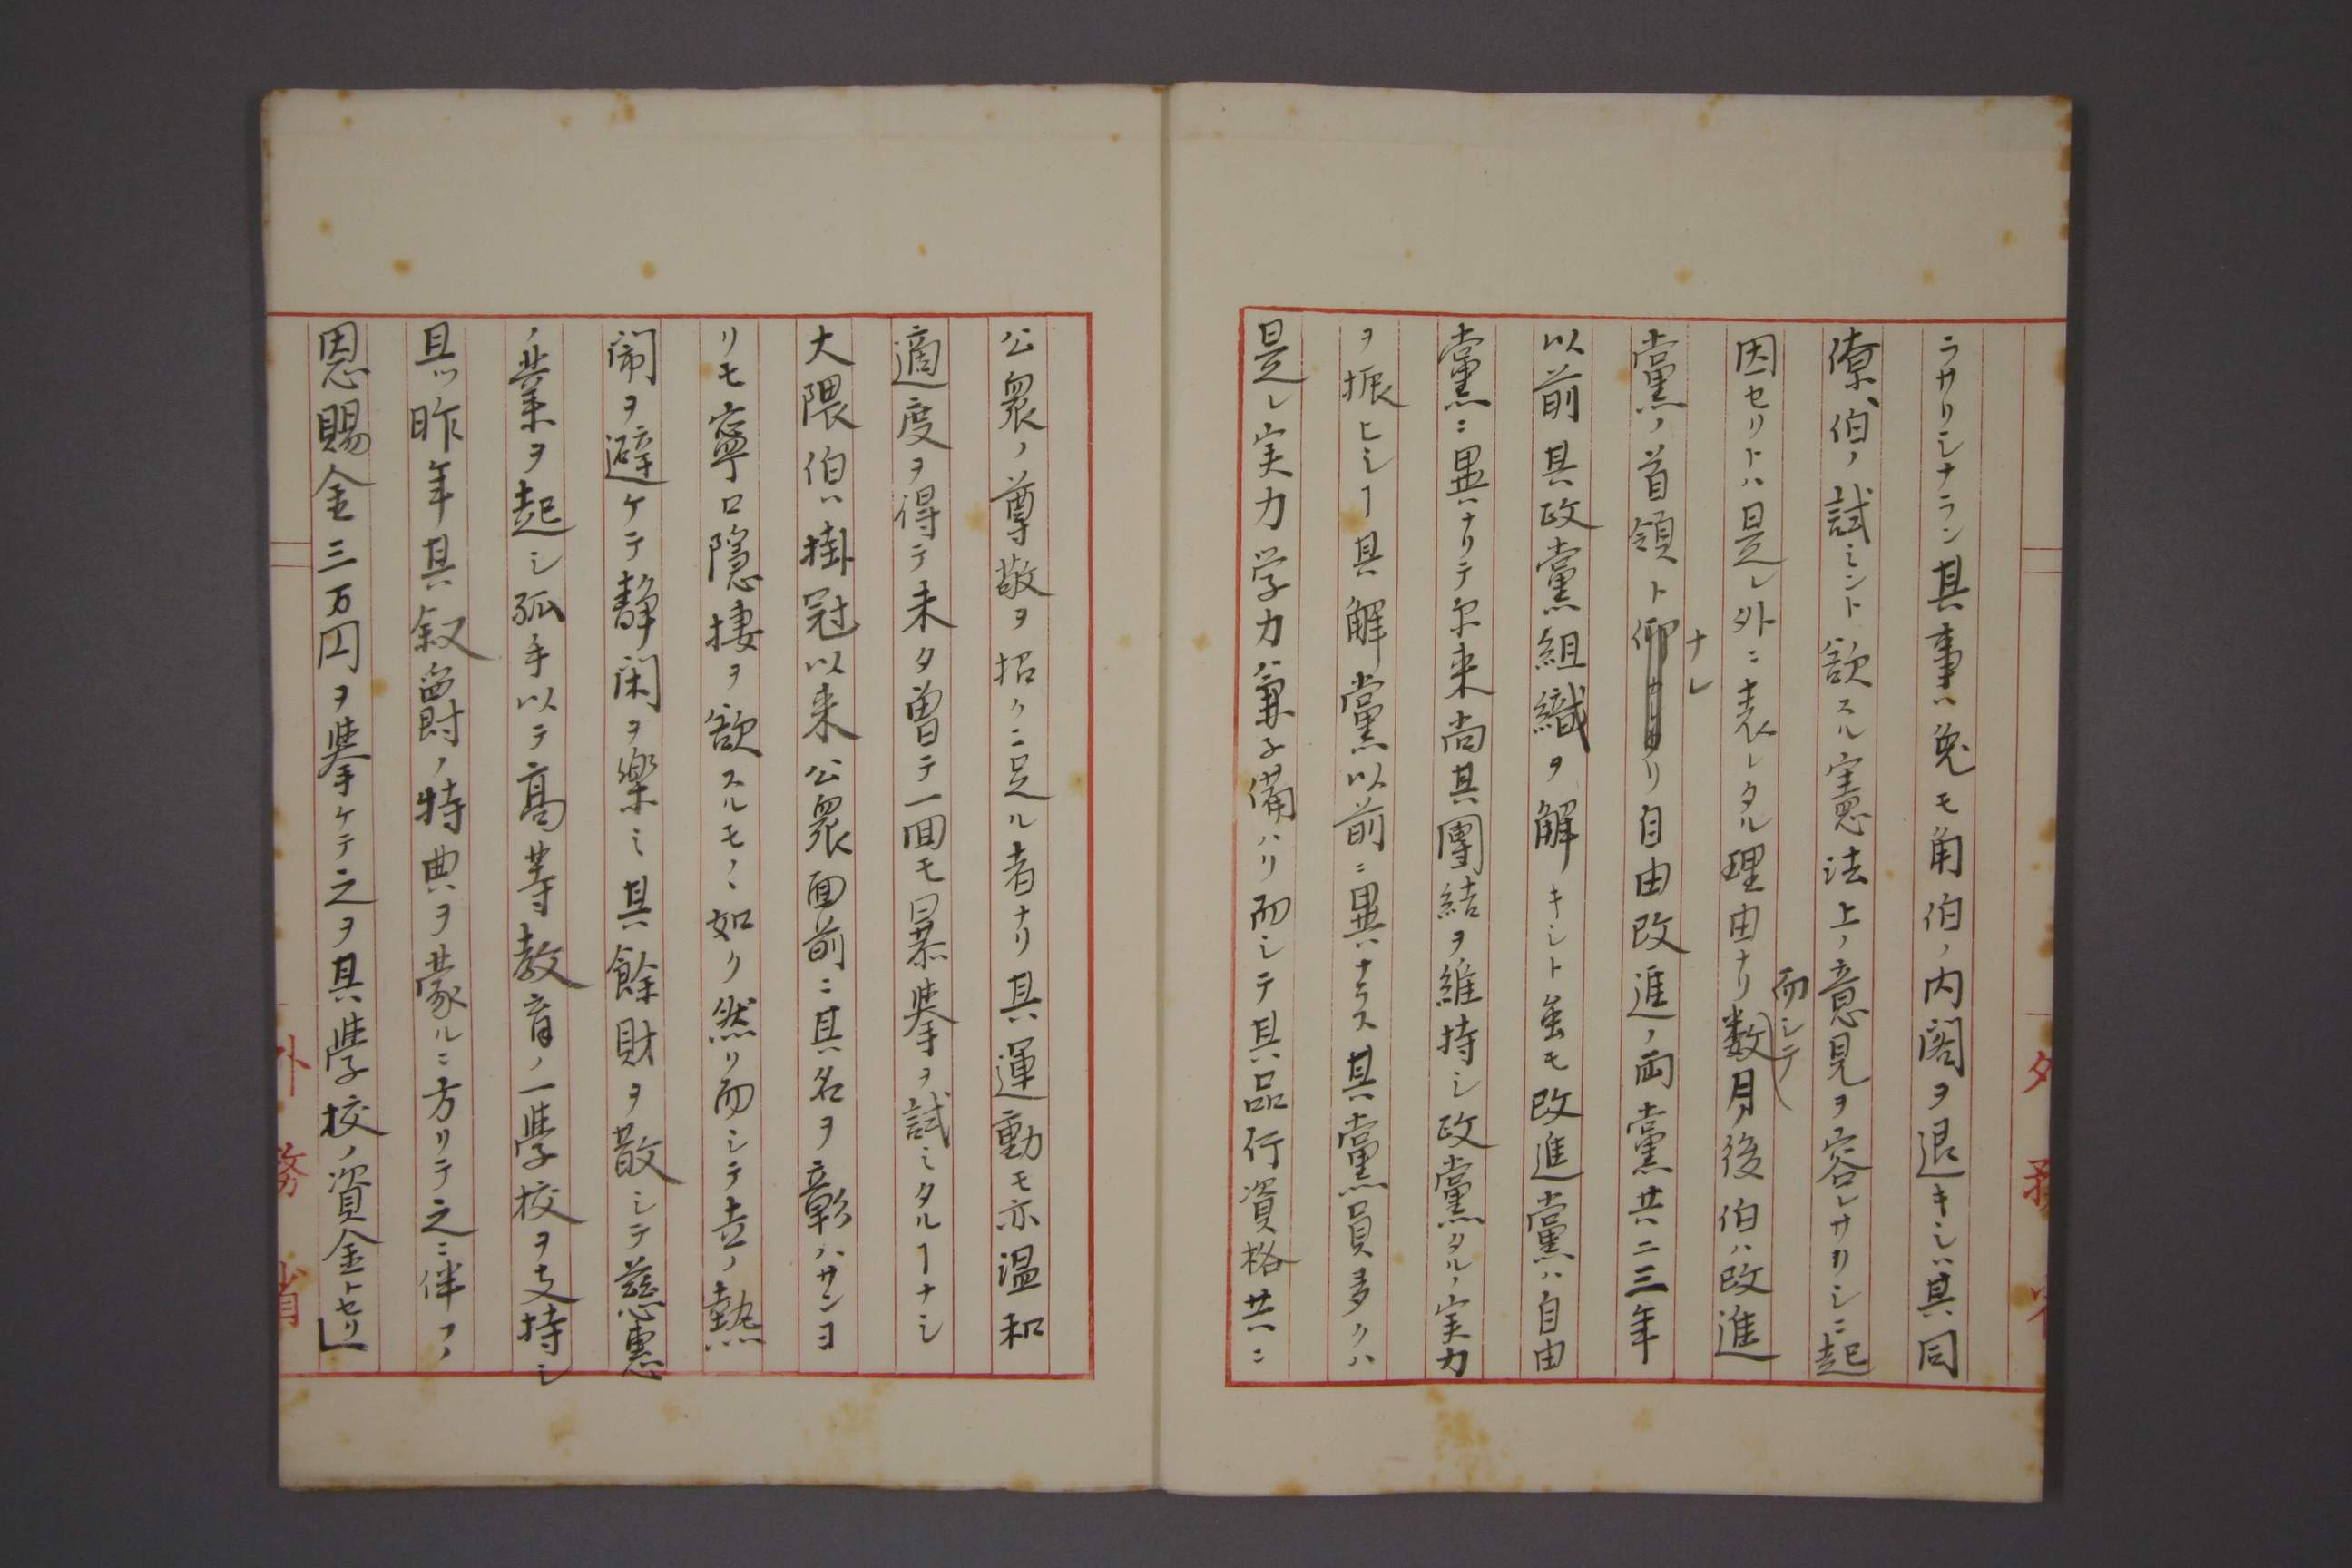 ラサリシナラン其事ハ兎モ角伯ノ内閣ヲ退キシハ其同
僚、伯ノ試ミント欲スル憲法上ノ意見ヲ容レサリシニ起
因セリトハ是レ外ニ表レタル理由ナリ而シテ数月ノ後伯ハ改進
黨ノ首領トナレリ自由改進ノ両黨共ニ三年
以前其政黨組織ヲ解キシト雖モ改進黨ハ自由
黨ニ異ハナリテ尓来尚其團結ヲ維持シ政黨タルノ実力
ヲ振ヒシヿ其解黨以前ニ異ハナラス其黨員多クハ
是レ実力学力兼子備ハリ而シテ其品行資格共ニ
公衆ノ尊敬ヲ招クニ足ル者ナリ其運動モ亦温和
適度ヲ得テ未タ曽テ一回モ暴挙ヲ試ミタルヿナシ
大隈伯ハ掛冠以来公衆面前ニ其名ヲ彰ハサンヨ
リモ寧ロ隠捿ヲ欲スルモノヽ如ク然リ而シテ㐂ノ熱
閙ヲ避ケテ静閑ヲ樂ミ其餘財ヲ散シテ慈惠
ノ業ヲ起シ孤手以テ高等教育ノ一學校ヲ支持シ
且ツ昨年其叙爵ノ特典ヲ蒙ルニ方リテ之ニ伴フノ
恩賜金三万円ヲ挙ケテ之ヲ其學校ノ資金トセリ」
外務省